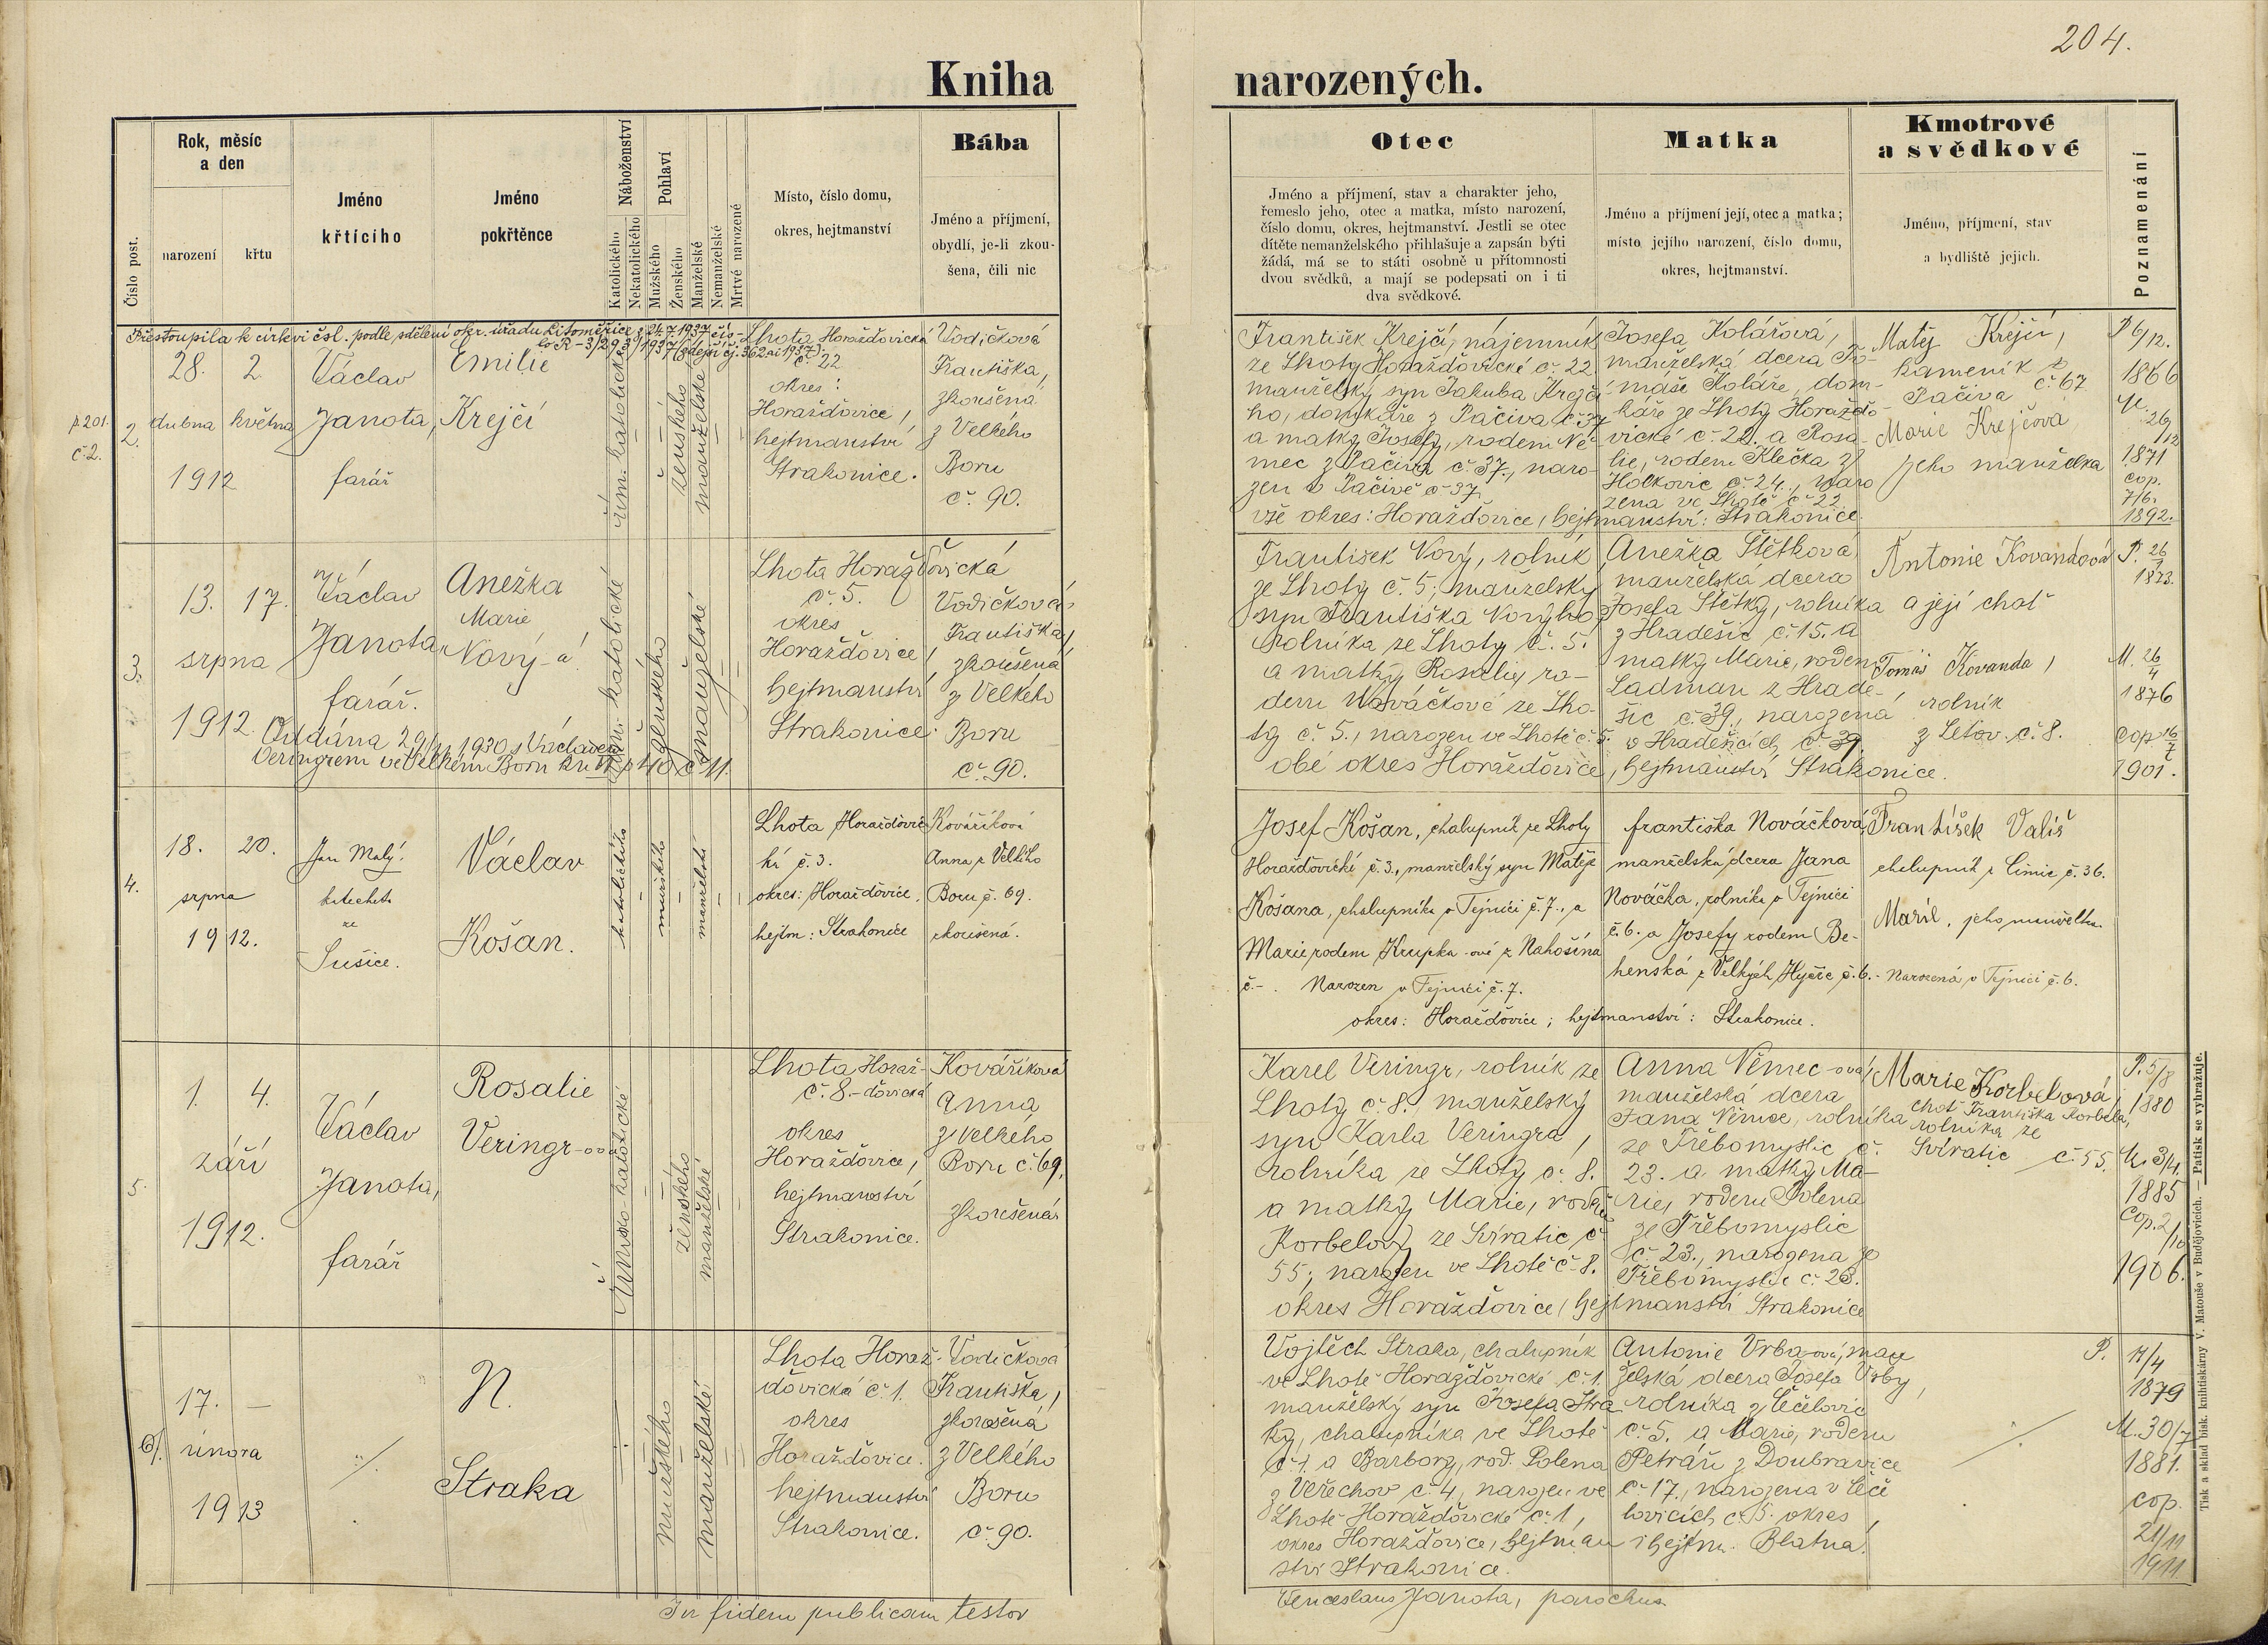 204.
Kniha narozených.
Číslo post.
Rok, měsíc
a den
narození
křtu
Jméno
křtícího
Jméno
pokřtěnce
Náboženství
Katolického
Nekatolického
Pohlaví
Mužského
Ženského
Manželské
Nemanželské
Mrtvé narozené
Místo, číslo domu,
okres, hejtmanství
Bába
Jméno a příjmení,
obydlí, je-li zkou-
šena, čili nic
Otec
Jméno a příjmení, stav a charakter jeho,
řemeslo jeho, otec a matka, místo narození,
číslo domu, okres, hejtmanství. Jestli se otec
dítěte nemanželského přihlašuje a zapsán býti
žádá, má se to státi osobně u přítomnosti
dvou svědků, a mají se podepsati on i ti
dva svědkové.
Matka
Jméno a příjmení její, otec a matka;
místo jejího narození, číslo domu,
okres, hejtmanství.
Kmotrové
a svědkové
Jméno, příjmení, stav
a bydliště jejich.
Poznamenání
Přestoupila k církvi čsl. podle sdělení okr. úřadu Litoměřice
p 201.
č 2.
2.
28. 2.
dubna května
1912
Václav
Janota,
farář
Emilie
Krejčí
řím. katolické
ženského
manželské
Lhota Horažďovická
č. 22
okres:
Horažďovice,
hejtmanství
Strakonice.
Vodičková
Františka,
zkoušená
z Velkého
Boru
č. 90.
František Krejčí, nájemník
ze Lhoty Horažďovické č. 22
manželský syn Jakuba Krejčí-
ho, domkáře z Pačiva č. 37
a matky Josefy, rodem Ně-
mec z Pačiva č. 37., naro-
zen v Pačivě č 37
vše okres: Horažďovice, hejtmanství: Strakonice.
Josefa Kolářová,
manželská dcera To-
máše Koláře, dom-
káře ze Lhoty Horažďo-
vické č. 22. a Rosa-
lie, rodem Klečka z
Holkovic č. 24., naro
zena ve Lhotě č 22
Matěj Krejčí,
kameník z
Pačiva č. 67
Marie Krejčová,
jeho manželka
P. 6/12.
1866
M.
26/12
1871
cop.
7/6.
1892.
3.
13. 17.
srpna
1912.
Václav
Janota,
farář.
Anežka
Marie
Nový-á
Oddána 29/4 1930 s Václavem
Veringrem ve Velkém Boru kn. VI p 40 č 11.
řím. katolické
ženského
manželské
Lhota Horažďovická
č. 5.
okres
Horažďovice,
hejtmanství
Strakonice.
Vodičková
Františka,
zkoušená
z Velkého
Boru
č. 90.
František Nový, rolník
ze Lhoty č. 5; manželský
syn Františka Nového,
rolníka ze Lhoty č. 5.
a matky Rosalie, ro-
dem Nováčkové ze Lho-
ty č. 5., narozen ve Lhotě č. 5.
obé okres Horažďovice, hejtmanství Strakonice.
Anežka Štětková
manželská dcera
Josefa Štětky, rolníka
z Hradešic č. 15. a
matky Marie, rodem
Ladman z Hrade-
šic č. 39., narozená
v Hradešicích č. 39.
Antonie Kovandová
a její choť
Tomáš Kovanda,
rolník
z Letov. č. 8.
M. 26/4
1876
cop 16/7
1901.
4.
18. 20.
srpna
1912.
Jan Malý.
katecheta
ze
Sušice.
Václav
Košan.
katolického
mužského
manželský
Lhota Horažďovic-
ká č. 3.
okres: Horažďovice.
hejtm: Strakonice
Kováříková
Anna z Velkého
Boru č. 69.
zkoušená.
Josef Košan, chalupník ze Lhoty
Horažďovické č. 3., manželský syn Matěje
Košana, chalupníka v Tejnici č. 7., a
Marie rodem Krupka-ové z Nahošína
č.-. Narozen v Tejnici č. 7.
okres: Horažďovice; hejtmanství: Strakonice.
Františka Nováčková
manželská dcera Jana
Nováčka, rolníka v Tejnici
č. 6. a Josefy rodem Be-
henská z Velkých Hyčic č. 6. - Narozená v Tejnici č. 6.
František Vališ
chalupník z Čimic č. 36.
Marie, jeho manželka.
5.
1. 4.
září
1912.
Václav
Janota,
farář
Rosalie
Veringr-ová
Římsko katolické
ženského
manželské
Lhota Horaž-
č. 8.-ďovická
okres
Horažďovice,
hejtmanství
Strakonice.
Kováříková
Anna
z Velkého
Boru č. 69,
zkoušená
Karel Veringr, rolník ze
Lhoty č. 8. manželský
syn Karla Veringra,
rolníka ze Lhoty č. 8.
a matky Marie, rodem
Korbelový ze Svíratic č
55; narozen ve Lhotě č. 8.
okres Horažďovice, hejtmanství Strakonice
Anna Němec-ová,
manželská dcera
Jana Němce, rolníka
ze Třebomyslic č.
23. a matky Ma-
rie, rodem Polena
ze Třebomyslic
č. 23., narozena ze
Třebomyslic č. 23.
Marie Korbelová,
choť Františka Korbela,
rolníka ze
Svíratic č. 55.
P. 5/8
1880
M. 3/4.
1885
Cop. 2/10
1906.
6.
17. —
února
1913
N.
Straka
mužského
manželské
Lhota Horaž-
ďovická č. 1.
okres
Horažďovice.
hejtmanství
Strakonice.
Vodičková
Františka,
zkoušená
z Velkého
Boru
č. 90.
Vojtěch Straka, chalupník
ve Lhotě Horažďovické č. 1.
manželský syn Josefa Stra
ky, chalupníka ve Lhotě
č. 1. a Barbory, rod. Polena
z Veřechov č. 4, narozen ve
Lhotě Horažďovické č. 1,
okres Horažďovice, hejtman
ství Strakonice.
Antonie Vrba-ová, man
želská dcera Josefa Vrby,
rolníka z Čečelovic
č. 5. a Marie, rodem
Petráň z Doubravice
č. 17., narozena v Čeče
lovicích č. 5. okres
i hejtm. Blatná.
P. 17/4
1879
M. 30/7
1881.
cop.
21/11
1911
In fidem publicam testor
Venceslaus Janota, parochus
Tisk a sklad bisk. knihtiskárny V. Matouše v Budějovicích. — Patisk se vyhražuje.